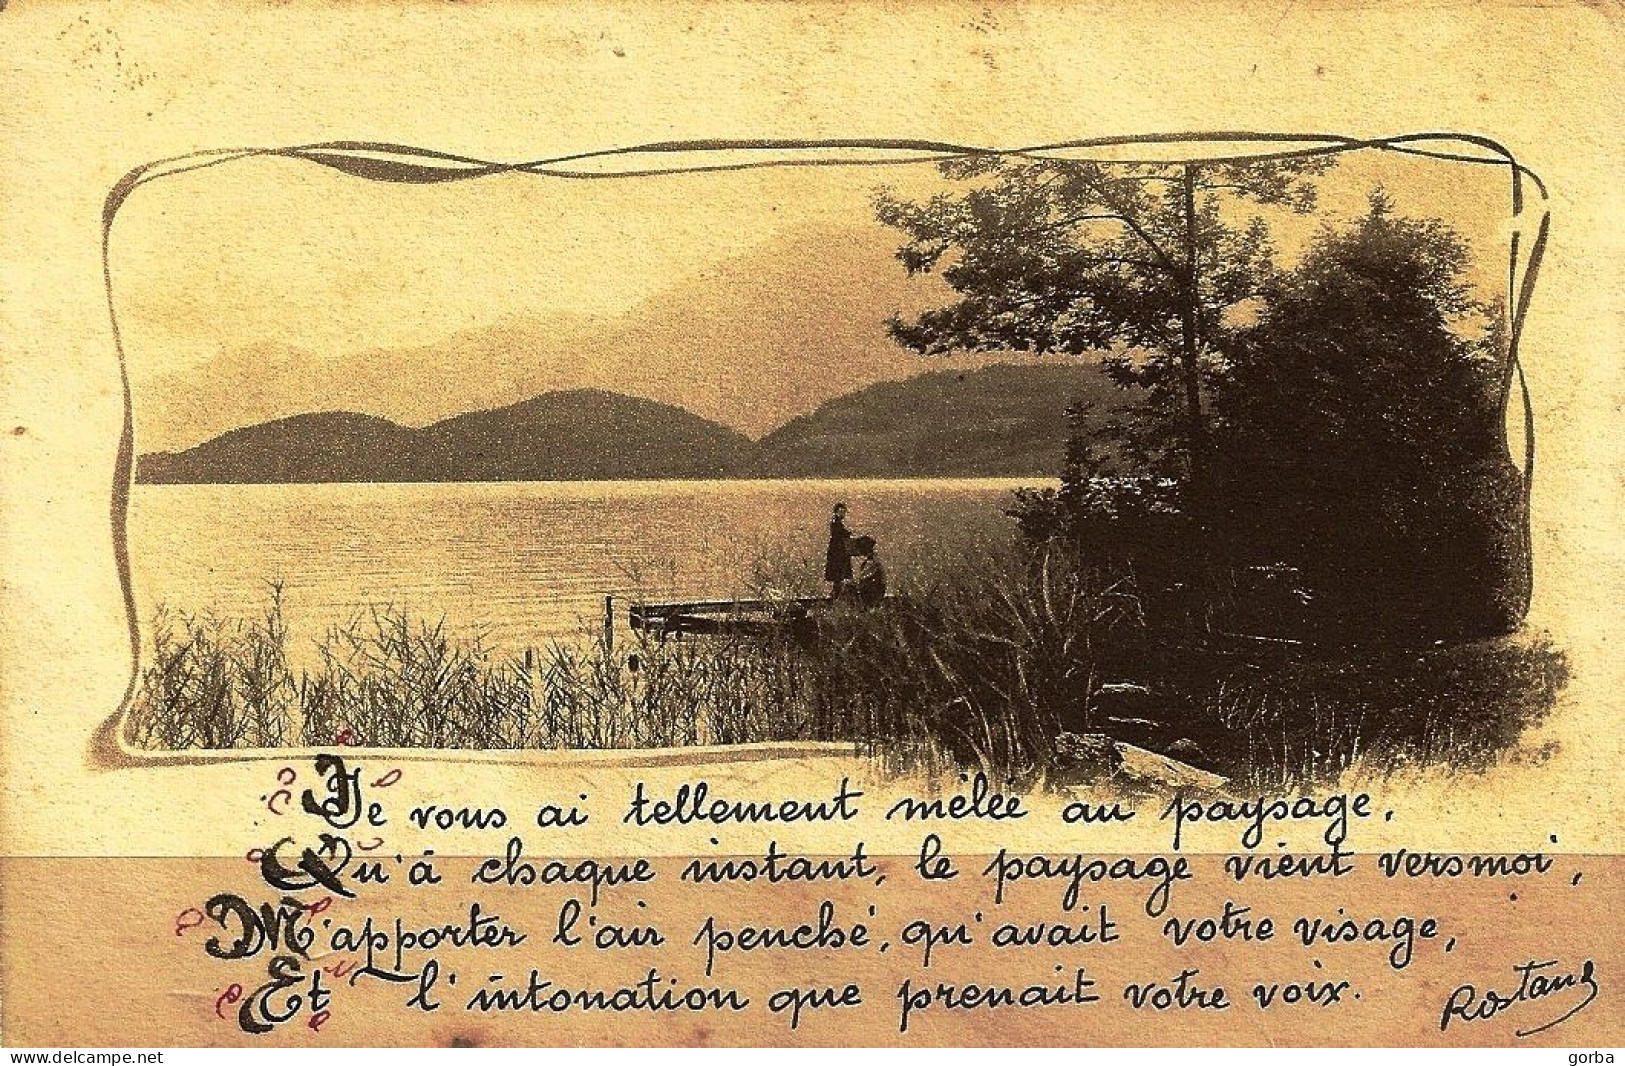 Je vous ai tellement mêlée au paysage,
Qu'à chaque instant, le paysage vient vers moi,
M'apporter l'air penché, qu'avait votre visage,
Et l'intonation que prenait votre voix.
Rostand
www.delcampe.net
gorba